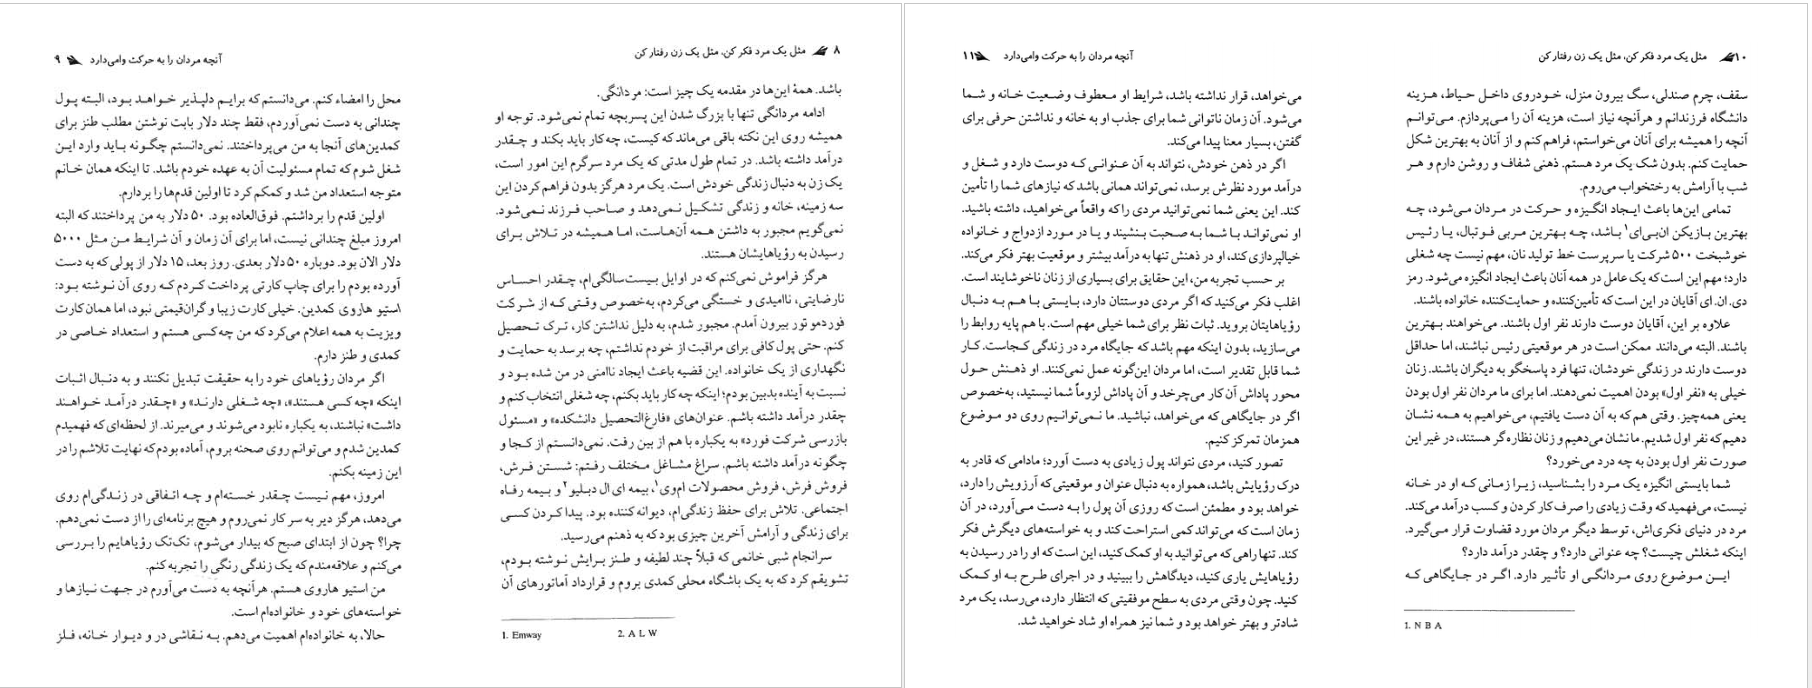 ۸ مثل یک مرد فکر کن، مثل یک زن رفتار کن
باشد. همهٔ این‌ها در مقدمه یک چیز است: مردانگی.
ادامه مردانگی تنها با بزرگ شدن این پسربچه تمام نمی‌شود. توجه او
همیشه روی این نکته باقی می‌ماند که کیست، چه‌کار باید بکند و چقدر
درآمد داشته باشد. در تمام طول مدتی که یک مرد سرگرم این امور است،
یک زن به دنبال زندگی خودش است. یک مرد هرگز بدون فراهم کردن این
سه زمینه، خانه و زندگی تشکیل نمی‌دهد و صاحب فرزند نمی‌شود.
نمی‌گویم مجبور به داشتن همه آن‌هاست، اما همیشه در تلاش برای
رسیدن به رؤیاهایشان هستند.
هرگز فراموش نمی‌کنم که در اوایل بیست‌سالگی‌ام، چقدر احساس
نارضایتی، ناامیدی و خستگی می‌کردم، به‌خصوص وقتی‌که از شرکت
فوردمو تور بیرون آمدم. مجبور شدم، به دلیل نداشتن کار، ترک تحصیل
کنم. حتی پول کافی برای مراقبت از خودم نداشتم، چه برسد به حمایت و
نگهداری از یک خانواده. این قضیه باعث ایجاد ناامنی در من شده بود و
نسبت به آینده بدبین بودم؛ اینکه چه کار باید بکنم، چه شغلی انتخاب کنم و
چقدر درآمد داشته باشم. عنوان‌های «فارغ‌التحصیل دانشکده» و «مسئول
بازرسی شرکت فورد» به یکباره با هم از بین رفت. نمی‌دانستم از کجا و
چگونه درآمد داشته باشم. سراغ مشاغل مختلف رفتم: شستن فرش،
فروش فرش، فروش محصولات ام‌وی۱، بیمه ای ال دبلیو۲ و بیمه رفاه
اجتماعی. تلاش برای حفظ زندگی‌ام، دیوانه کننده بود. پیدا کردن کسی
برای زندگی و آرامش آخرین چیزی بود که به ذهنم می‌رسید.
سرانجام شبی خانمی که قبلاً چند لطیفه و طنز برایش نوشته بودم،
تشویقم کرد که به یک باشگاه محلی کمدی بروم و قرارداد آماتورهای آن
1. Emway 2. A L W
آنچه مردان را به حرکت وامی‌دارد ۹
محل را امضاء کنم. می‌دانستم که برایم دلپذیر خواهد بود، البته پول
چندانی به دست نمی‌آوردم، فقط چند دلار بابت نوشتن مطلب طنز برای
کمدین‌های آنجا به من می‌پرداختند. نمی‌دانستم چگونه باید وارد این
شغل شوم که تمام مسئولیت آن به عهده خودم باشد. تا اینکه همان خانم
متوجه استعداد من شد و کمکم کرد تا اولین قدم‌ها را بردارم.
اولین قدم را برداشتم. فوق‌العاده بود. ۵۰ دلار به من پرداختند که البته
امروز مبلغ چندانی نیست، اما برای آن زمان و آن شرایط من مثل ۵۰۰۰
دلار الان بود. دوباره ۵۰ دلار بعدی. روز بعد، ۱۵ دلار از پولی که به دست
آورده بودم را برای چاپ کارتی پرداخت کردم که روی آن نوشته بود:
استیو هاروی کمدین. خیلی کارت زیبا و گران‌قیمتی نبود، اما همان کارت
ویزیت به همه اعلام می‌کرد که من چه کسی هستم و استعداد خاصی در
کمدی و طنز دارم.
اگر مردان رؤیاهای خود را به حقیقت تبدیل نکنند و به دنبال اثبات
اینکه «چه کسی هستند»، «چه شغلی دارند» و «چقدر درآمد خواهند
داشت» نباشند، به یکباره نابود می‌شوند و می‌میرند. از لحظه‌ای که فهمیدم
کمدین شدم و می‌توانم روی صحنه بروم، آماده بودم که نهایت تلاشم را در
این زمینه بکنم.
امروز، مهم نیست چقدر خسته‌ام و چه اتفاقی در زندگی‌ام روی
می‌دهد، هرگز دیر به سر کار نمی‌روم و هیچ برنامه‌ای را از دست نمی‌دهم.
چرا؟ چون از ابتدای صبح که بیدار می‌شوم، تک‌تک رؤیاهایم را بررسی
می‌کنم و علاقه‌مندم که یک زندگی رنگی را تجربه کنم.
من استیو هاروی هستم. هرآنچه به دست می‌آورم در جهت نیازها و
خواسته‌های خود و خانواده‌ام است.
حالا، به خانواده‌ام اهمیت می‌دهم. به نقاشی در و دیوار خانه، فلز
۱۰ مثل یک مرد فکر کن، مثل یک زن رفتار کن
سقف، چرم صندلی، سگ بیرون منزل، خودروی داخل حیاط، هزینه
دانشگاه فرزندانم و هرآنچه نیاز است، هزینه آن را می‌پردازم. می‌توانم
آنچه را همیشه برای آنان می‌خواستم، فراهم کنم و از آنان به بهترین شکل
حمایت کنم. بدون شک یک مرد هستم. ذهنی شفاف و روشن دارم و هر
شب با آرامش به رختخواب می‌روم.
تمامی این‌ها باعث ایجاد انگیزه و حرکت در مردان می‌شود، چه
بهترین بازیکن ان‌بی‌ای۱ باشد، چه بهترین مربی فوتبال، یا رئیس
خوشبخت ۵۰۰ شرکت یا سرپرست خط تولید نان، مهم نیست چه شغلی
دارد؛ مهم این است که یک عامل در همه آنان باعث ایجاد انگیزه می‌شود. رمز
دی. ان. ای آقایان در این است که تأمین‌کننده و حمایت‌کننده خانواده باشند.
علاوه بر این، آقایان دوست دارند نفر اول باشند. می‌خواهند بهترین
باشند. البته می‌دانند ممکن است در هر موقعیتی رئیس نباشند، اما حداقل
دوست دارند در زندگی خودشان، تنها فرد پاسخگو به دیگران باشند. زنان
خیلی به «نفر اول» بودن اهمیت نمی‌دهند. اما برای ما مردان نفر اول بودن
یعنی همه‌چیز. وقتی هم که به آن دست یافتیم، می‌خواهیم به همه نشان
دهیم که نفر اول شدیم. ما نشان می‌دهیم و زنان نظاره‌گر هستند، در غیر این
صورت نفر اول بودن به چه درد می‌خورد؟
شما بایستی انگیزه یک مرد را بشناسید، زیرا زمانی که او در خانه
نیست، می‌فهمید که وقت زیادی را صرف کار کردن و کسب درآمد می‌کند.
مرد در دنیای فکری‌اش، توسط دیگر مردان مورد قضاوت قرار می‌گیرد.
اینکه شغلش چیست؟ چه عنوانی دارد؟ و چقدر درآمد دارد؟
این موضوع روی مردانگی او تأثیر دارد. اگر در جایگاهی که
1. N B A
آنچه مردان را به حرکت وامی‌دارد ۱۱
می‌خواهد، قرار نداشته باشد، شرایط او معطوف وضعیت خانه و شما
می‌شود. آن زمان ناتوانی شما برای جذب او به خانه و نداشتن حرفی برای
گفتن، بسیار معنا پیدا می‌کند.
اگر در ذهن خودش، نتواند به آن عنوانی که دوست دارد و شغل و
درآمد مورد نظرش برسد، نمی‌تواند همانی باشد که نیازهای شما را تأمین
کند. این یعنی شما نمی‌توانید مردی را که واقعاً می‌خواهید، داشته باشید.
او نمی‌تواند با شما به صحبت بنشیند و یا در مورد ازدواج و خانواده
خیالپردازی کند، او در ذهنش تنها به درآمد بیشتر و موقعیت بهتر فکر می‌کند.
بر حسب تجربه من، این حقایق برای بسیاری از زنان ناخوشایند است.
اغلب فکر می‌کنید که اگر مردی دوستتان دارد، بایستی با هم به دنبال
رؤیاهایتان بروید. ثبات نظر برای شما خیلی مهم است. با هم پایه روابط را
می‌سازید، بدون اینکه مهم باشد که جایگاه مرد در زندگی کجاست. کار
شما قابل تقدیر است، اما مردان این‌گونه عمل نمی‌کنند. او ذهنش حول
محور پاداش آن کار می‌چرخد و آن پاداش لزوماً شما نیستید، به‌خصوص
اگر در جایگاهی که می‌خواهد، نباشید. ما نمی‌توانیم روی دو موضوع
همزمان تمرکز کنیم.
تصور کنید، مردی نتواند پول زیادی به دست آورد؛ مادامی که قادر به
درک رؤیایش باشد، همواره به دنبال عنوان و موقعیتی که آرزویش را دارد،
خواهد بود و مطمئن است که روزی آن پول را به دست می‌آورد، در آن
زمان است که می‌تواند کمی استراحت کند و به خواسته‌های دیگرش فکر
کند. تنها راهی که می‌توانید به او کمک کنید، این است که او را در رسیدن به
رؤیاهایش یاری کنید، دیدگاهش را ببینید و در اجرای طرح به او کمک
کنید. چون وقتی مردی به سطح موفقیتی که انتظار دارد، می‌رسد، یک مرد
شادتر و بهتر خواهد بود و شما نیز همراه او شاد خواهید شد.